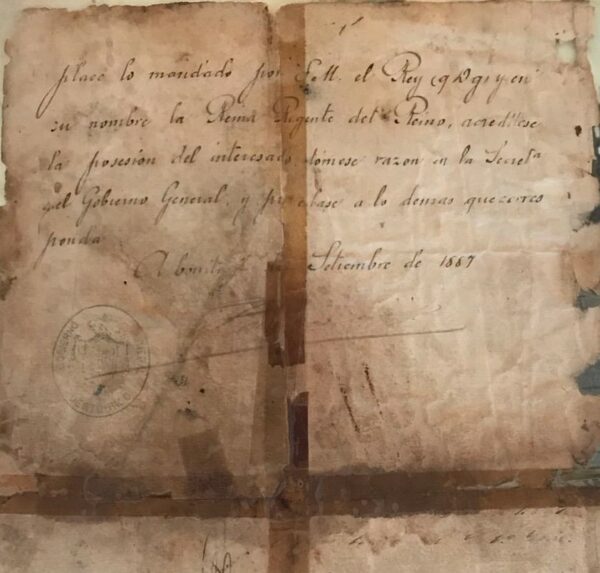 plase lo mandado por S.M. el Rey (q D g) y en
su nombre la Reina Regente del Reino, acredítese
la posesión del interesado, tómese razon en la Secreta
del Gobierno General, y procedase a lo demas que corres
ponda
Aibonito Setiembre de 1887
GOBIERNO
PUERTO-RICO